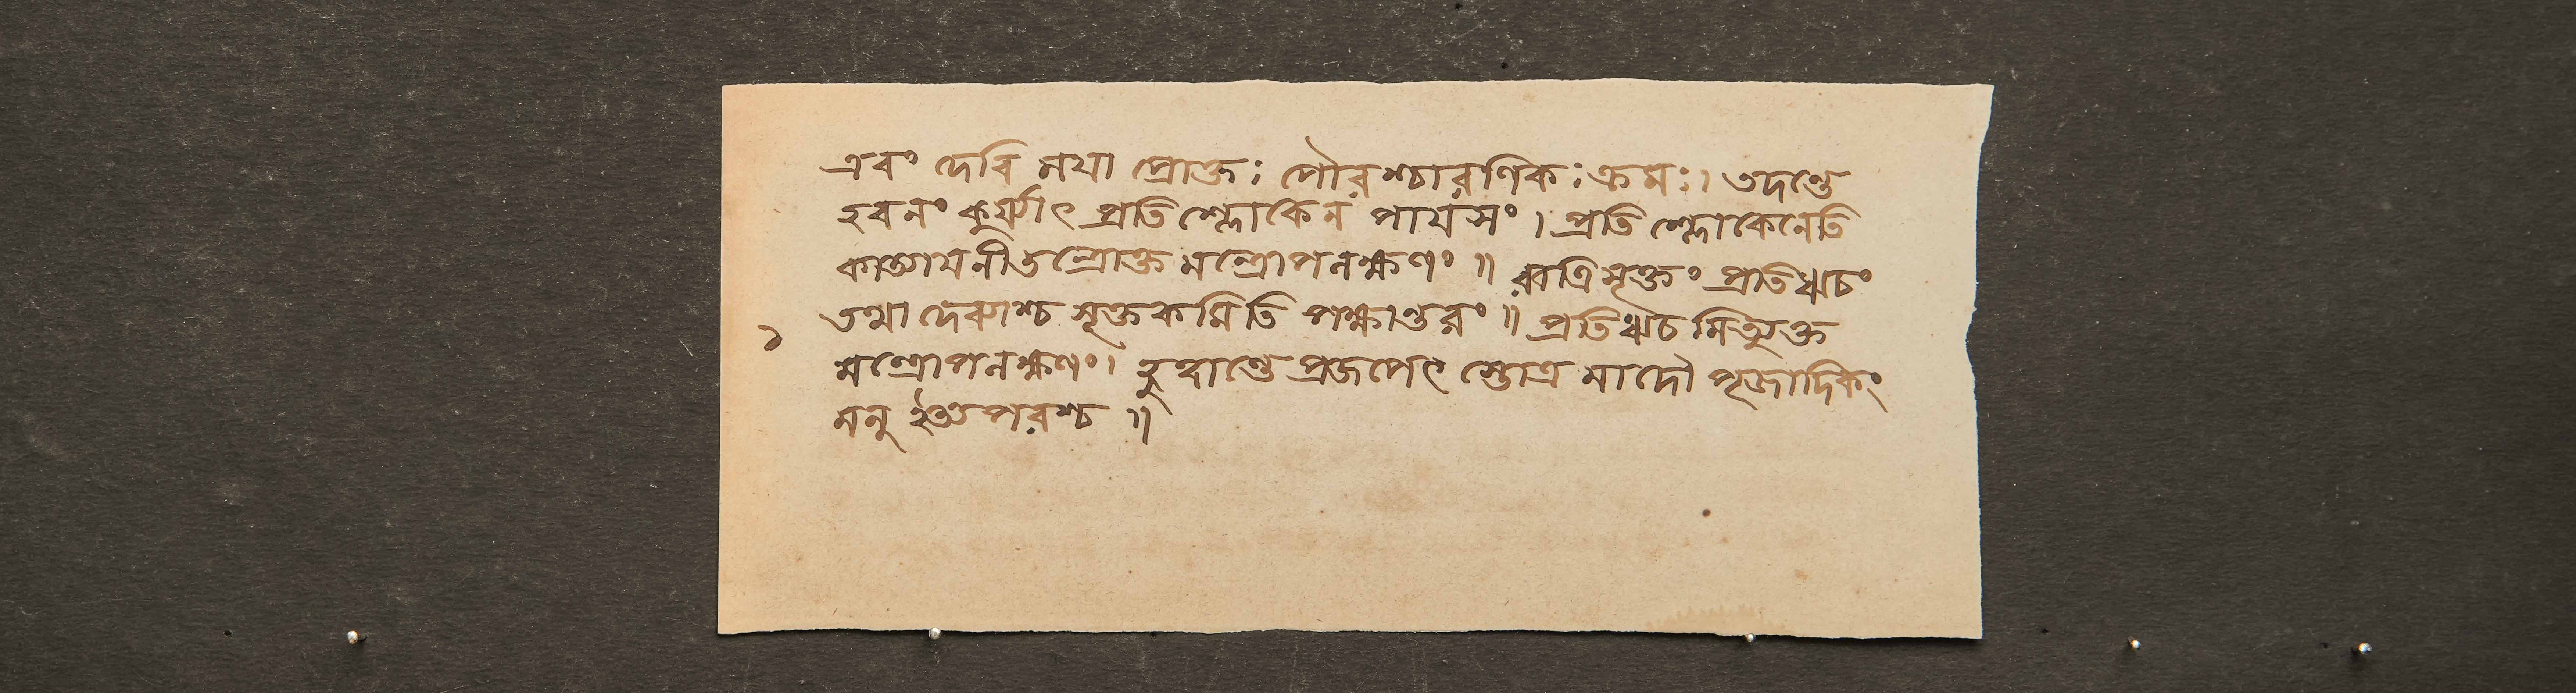 এবং দেবি ময়া প্রোক্তঃ পৌরশ্চারণিকঃ ক্রমঃ। তদন্তে
হবনং কুর্য্যাৎ প্রতিশ্লোকেন পায়সং। প্রতিশ্লোকেনেতি
কাত্যায়নীতন্ত্রোক্তমন্ত্রোপলক্ষণং॥ রাত্রিসূক্তং প্রতিঋচং
তথা দেব্যাশ্চ সূক্তকমিতি পক্ষান্তরং॥ প্রতিঋচমিত্যুক্ত
১
মন্ত্রোপলক্ষণং। হুত্বান্তে প্রজপেৎ স্তোত্রমাদৌ পূজাদিকং
মনু পরশ্চ॥